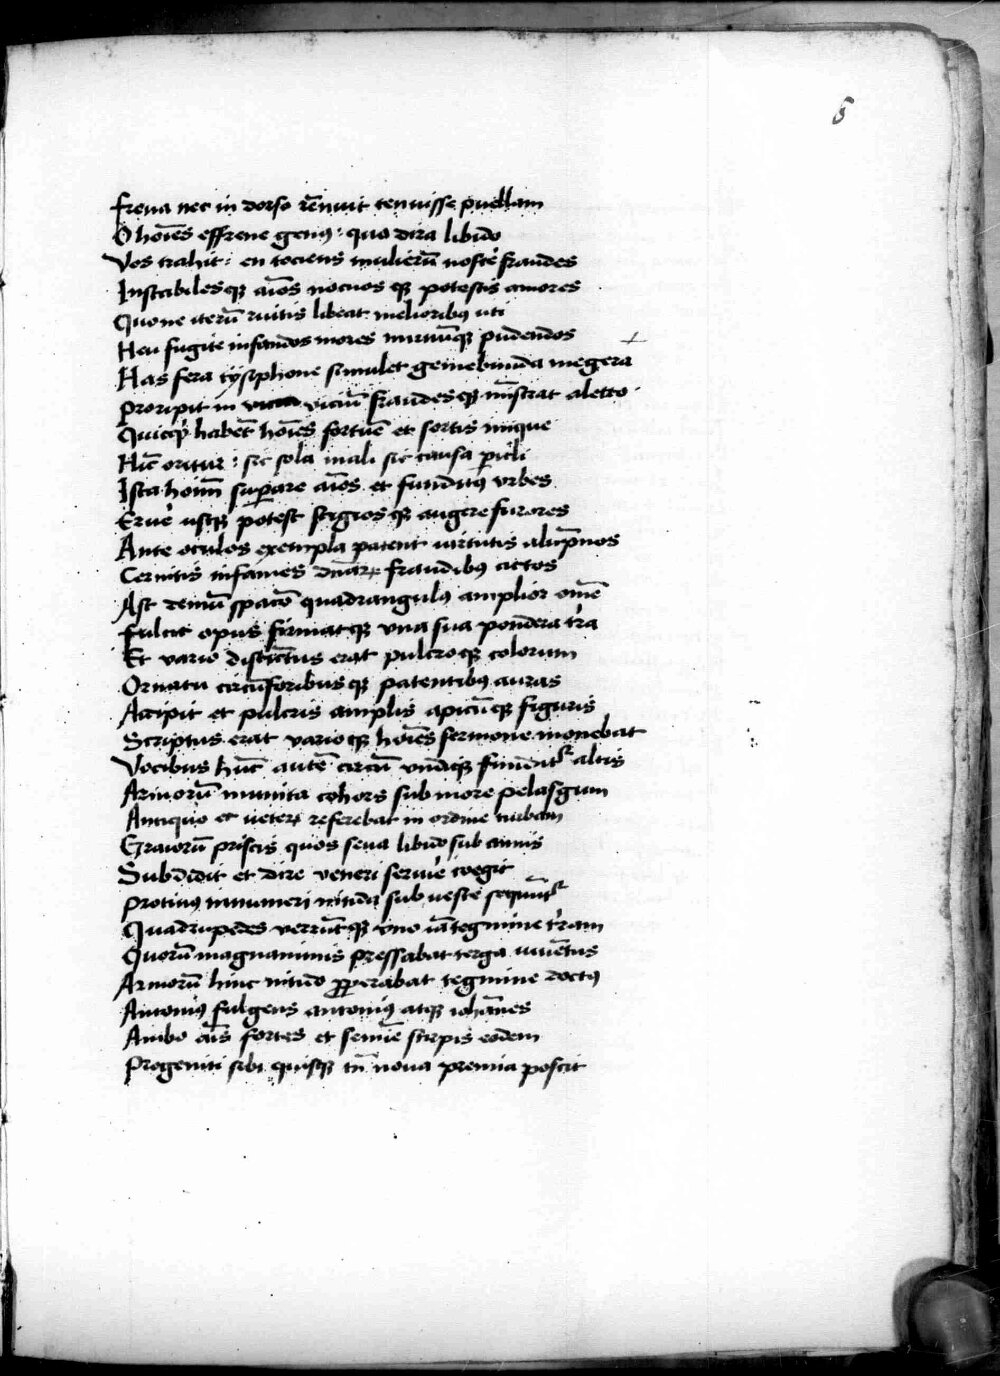 6
frena nec in dorso rēnuit tenuisse puellam
O hoīes effrene genꝰ : quo dira libido
Vos trahit : en tociens mulierū nosť fraudes
Instabilesqꝫ aīos nocuos qꝫ potestis amores
Quo ne iterū ruitis libeat melioribꝰ uti
Heu fugite infandos mores nurūūqꝫ pudendos
Has fera tysiphone simulet gemebunda megera
proripit in viciū fraudesqꝫ mīstrat aletto
Quicqͥ habēt hoīes fortūe et sortis inique
Hīc oritur : sic sola mali sic causa ꝑicli
Ista hoīm suꝑare aīos et funditꝰ vrbes
Eruē usqꝫ potest stigiosqꝫ augere furores
Ante oculos exempla patent uirtutis alūpnos
Cernitis infames dn̄aꝝ fraudibꝰ actos
Ast demū spacō quadrangulꝰ amplior om̄e
fulcit opus firmatqꝫ vna sua pondera tr̄a
Et vario distīctus erat pulcroqꝫ colorum
Ornatu circū foribusqꝫ patentibꝰ auras
Accipit et pulcris amplis apicūqꝫ figuris
Scriptus erat varioqꝫ hoīes sermone monebat
Vocibus hūc autē circū vndiqꝫ fundūtᷣ altis
Armorū munita cohors sub more pelasgum
Antiquo et ueteꝝ referebat in ordine turbam
Graiorū priscis quos seua libido sub annis
Subdidit et dire veneri seruīe coegit
protinꝰ innumeri nitida sub ueste sequūtᷣ
Quadrupedes verrūtqꝫ vno iā tegmine tr̄am
Quorū magnanimis pressabat terga iuuētus
Armorū hinc nitido ꝓperabat tegmine doctꝰ
Antoniꝰ fulgens antoniꝰ atqꝫ iohānes
Ambo aīs fortes et semīe stirpis eodem
Progeniti sibi quisqꝫ tn̄ noua premia poscit